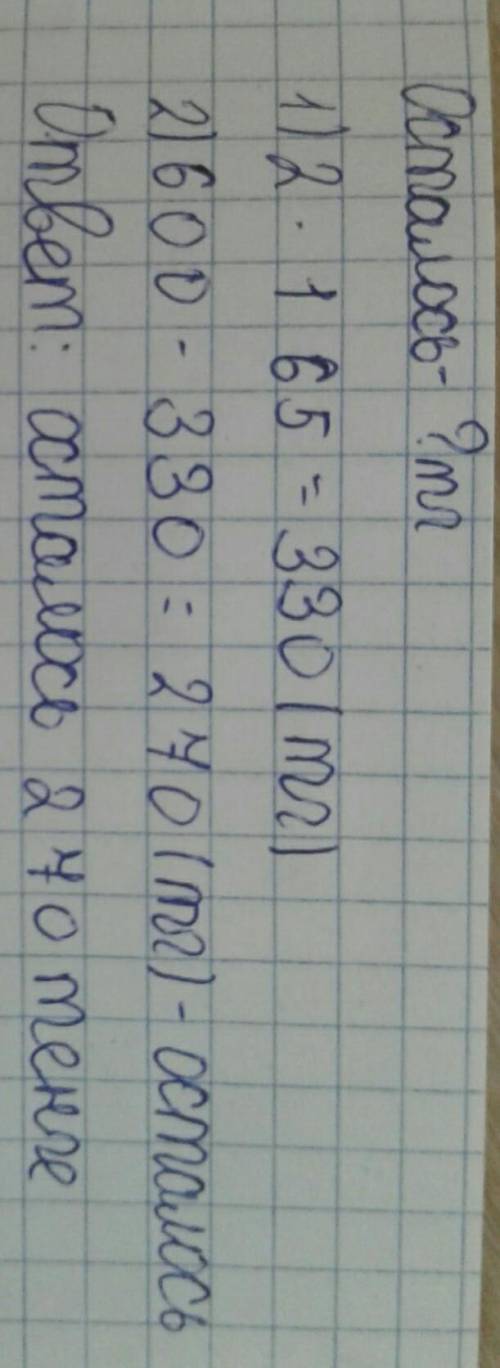 Осталось - ? тг
1) 2 · 165 = 330 (тг)
2) 600 - 330 = 270 (тг) - осталось
Ответ: осталось 270 тенге